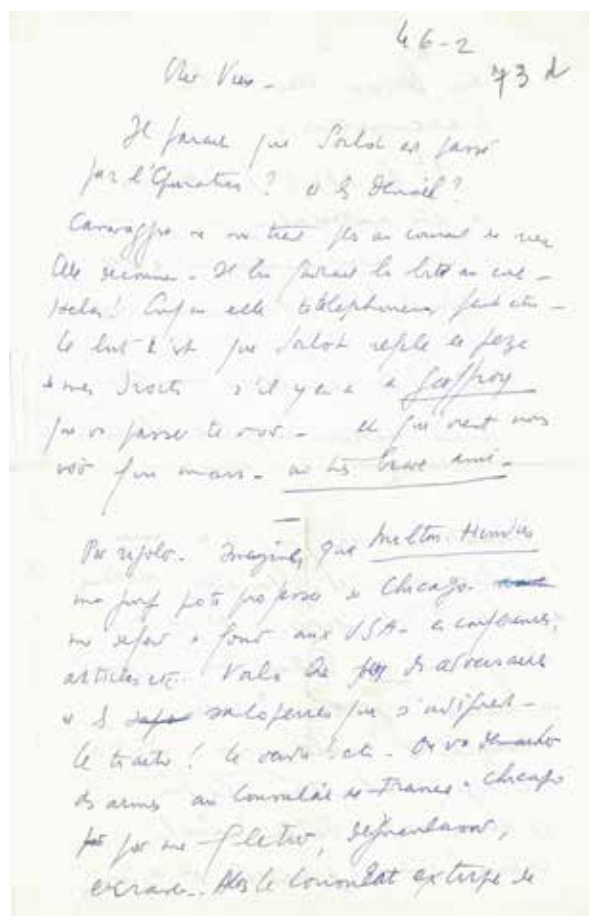 46-2
73 d
Cher Vieux -
Il parait que Sorlot est passé
par l'Epuration ? et le Denoël ?
Canavaggia ne me tient pas au courant de rien
Elle déconne - Il lui faudrait la bite au cul -
Hélas ! Enfin elle téléphonera peut etre -
Le but c'est que Sorlot règle et paye
mes droits s'il y en a à Geoffroy
qui va passer te voir - et qui vient nous
voir fin mars - un très brave ami -
Plus rigolo. Imagines que Milton Hindus
mon prof juif professeur à Chicago
me défend à fond aux USA - en conférences,
articles etc. Voila de adversaires
et de saloperies qui s'indignent -
le traitre ! le vendu ! etc - On va demander
des armes au Consulat de France à Chicago
pour me flétrir,
écraser. Alors le Consulat de